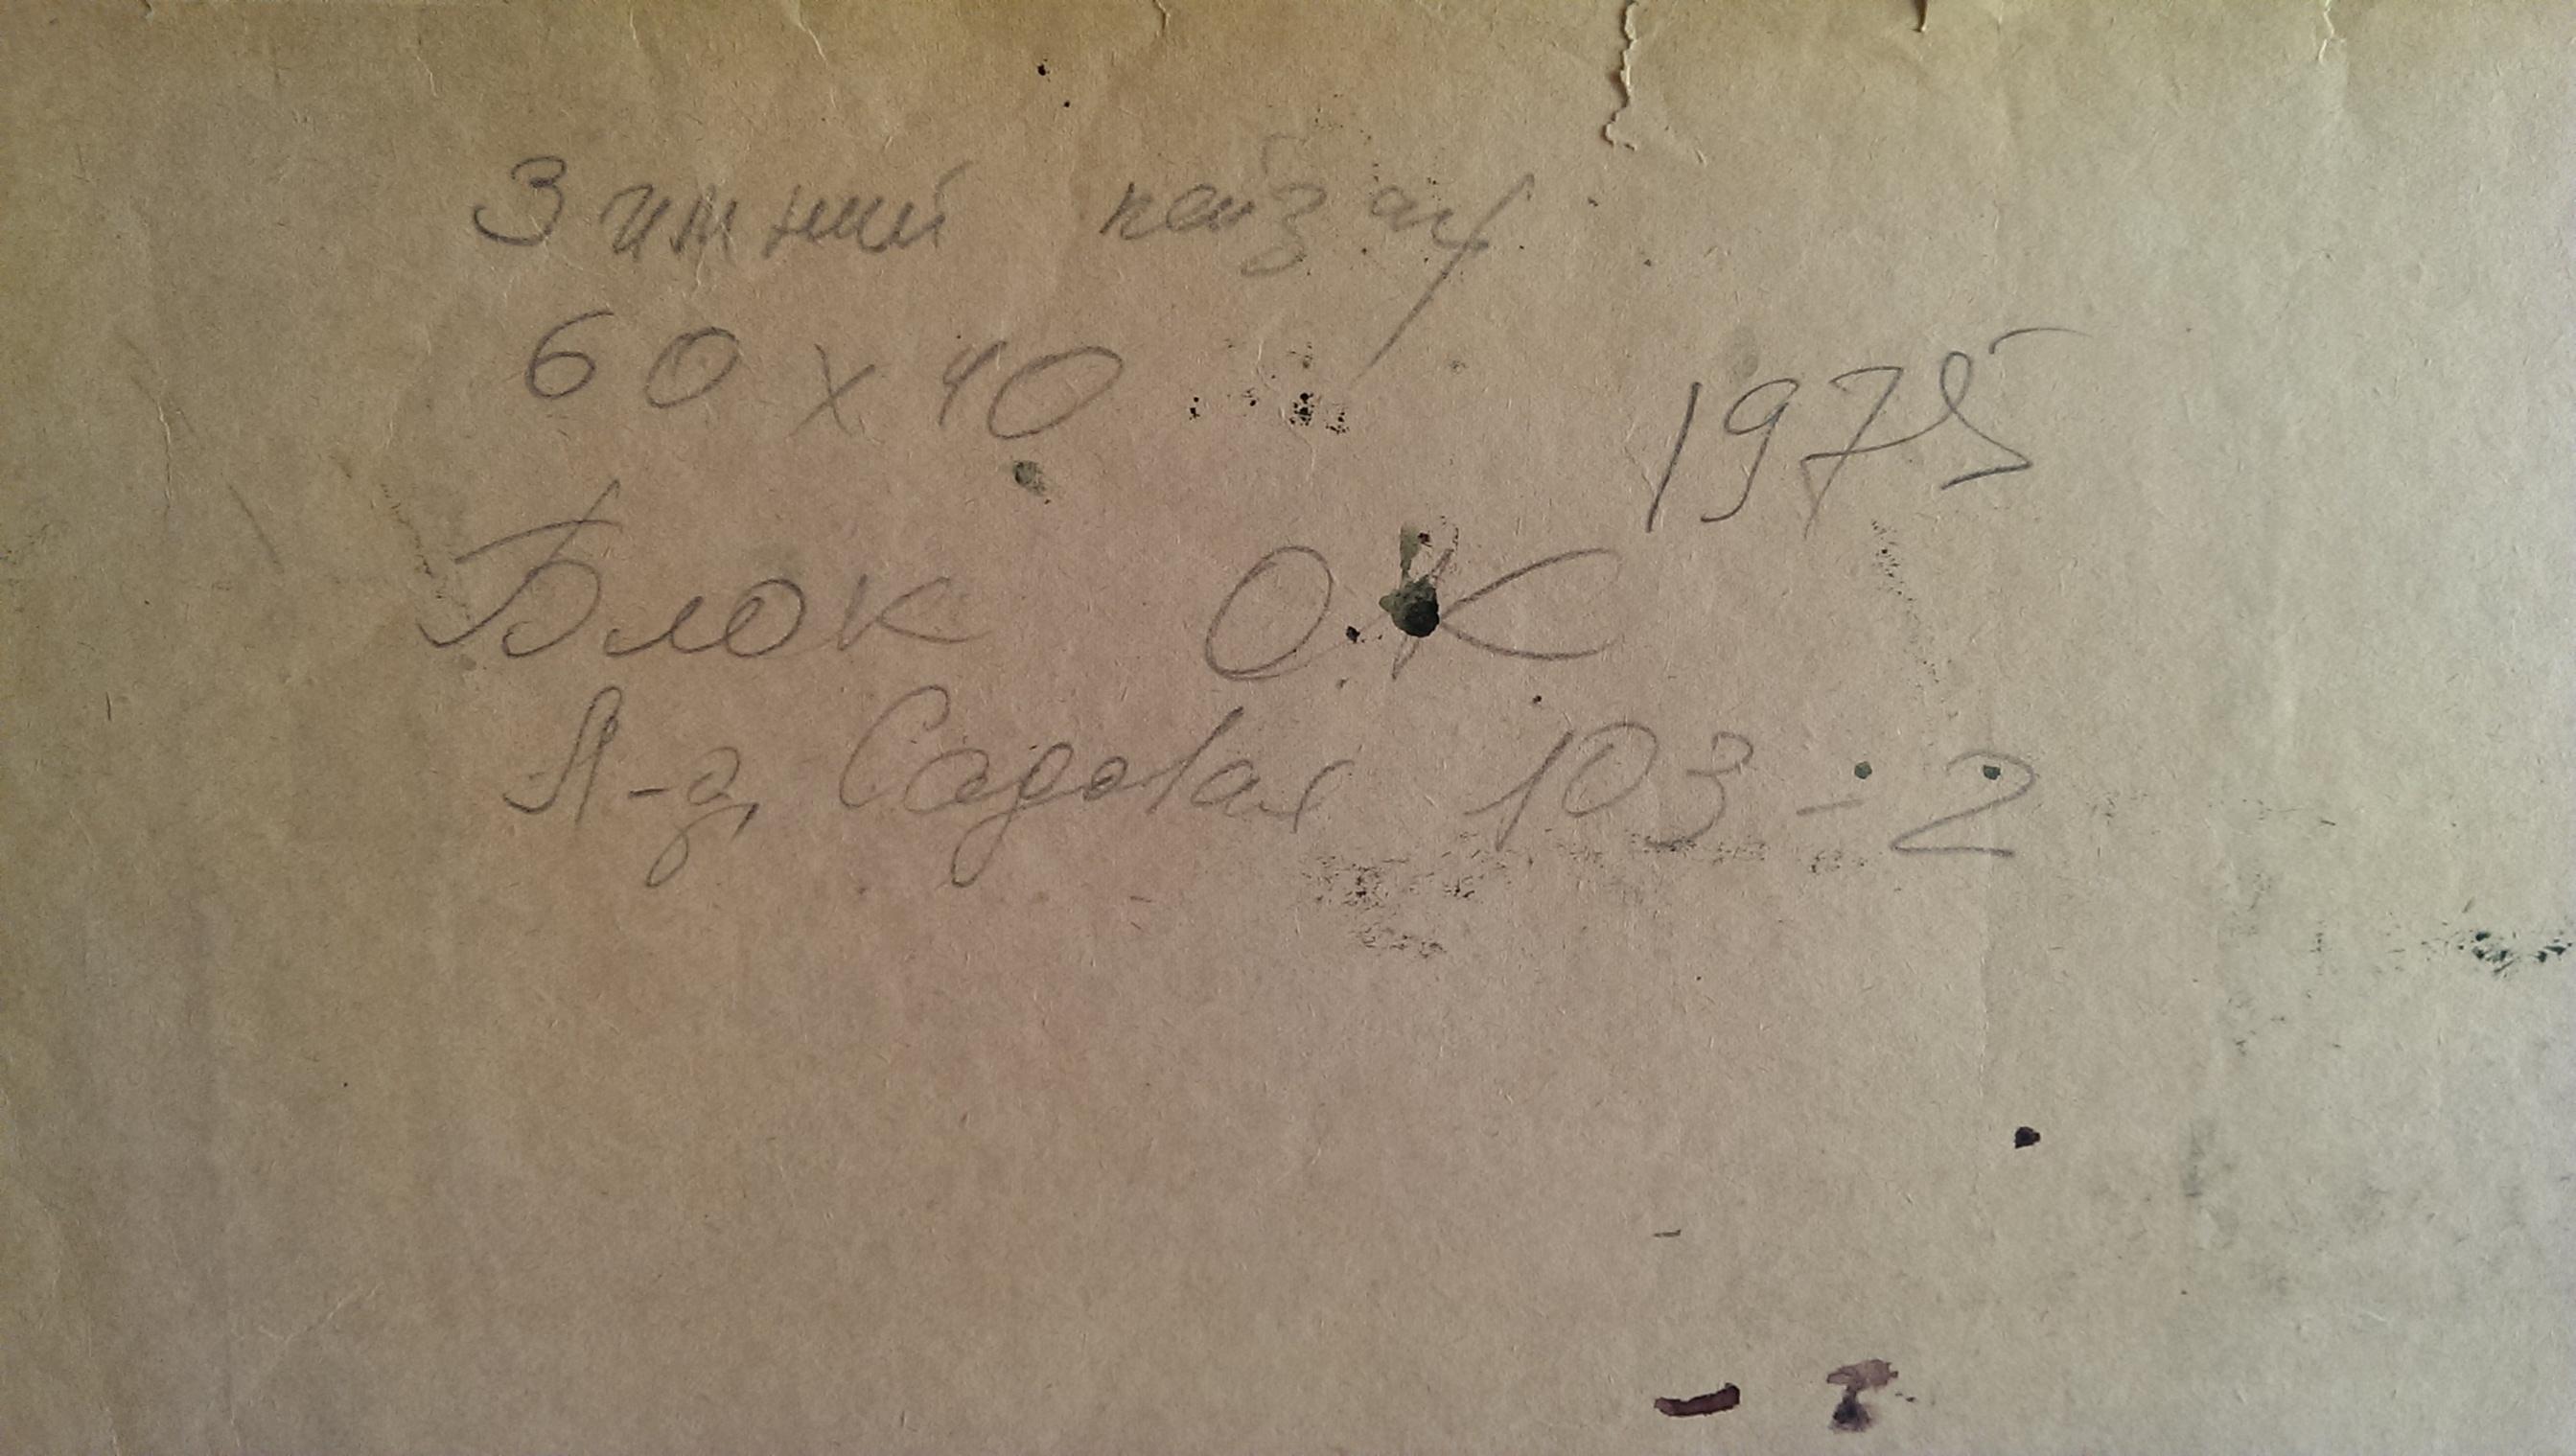 Зимний пейзаж
60 х 40
1975
Блок О.К
Л-д, Садовая 103-2